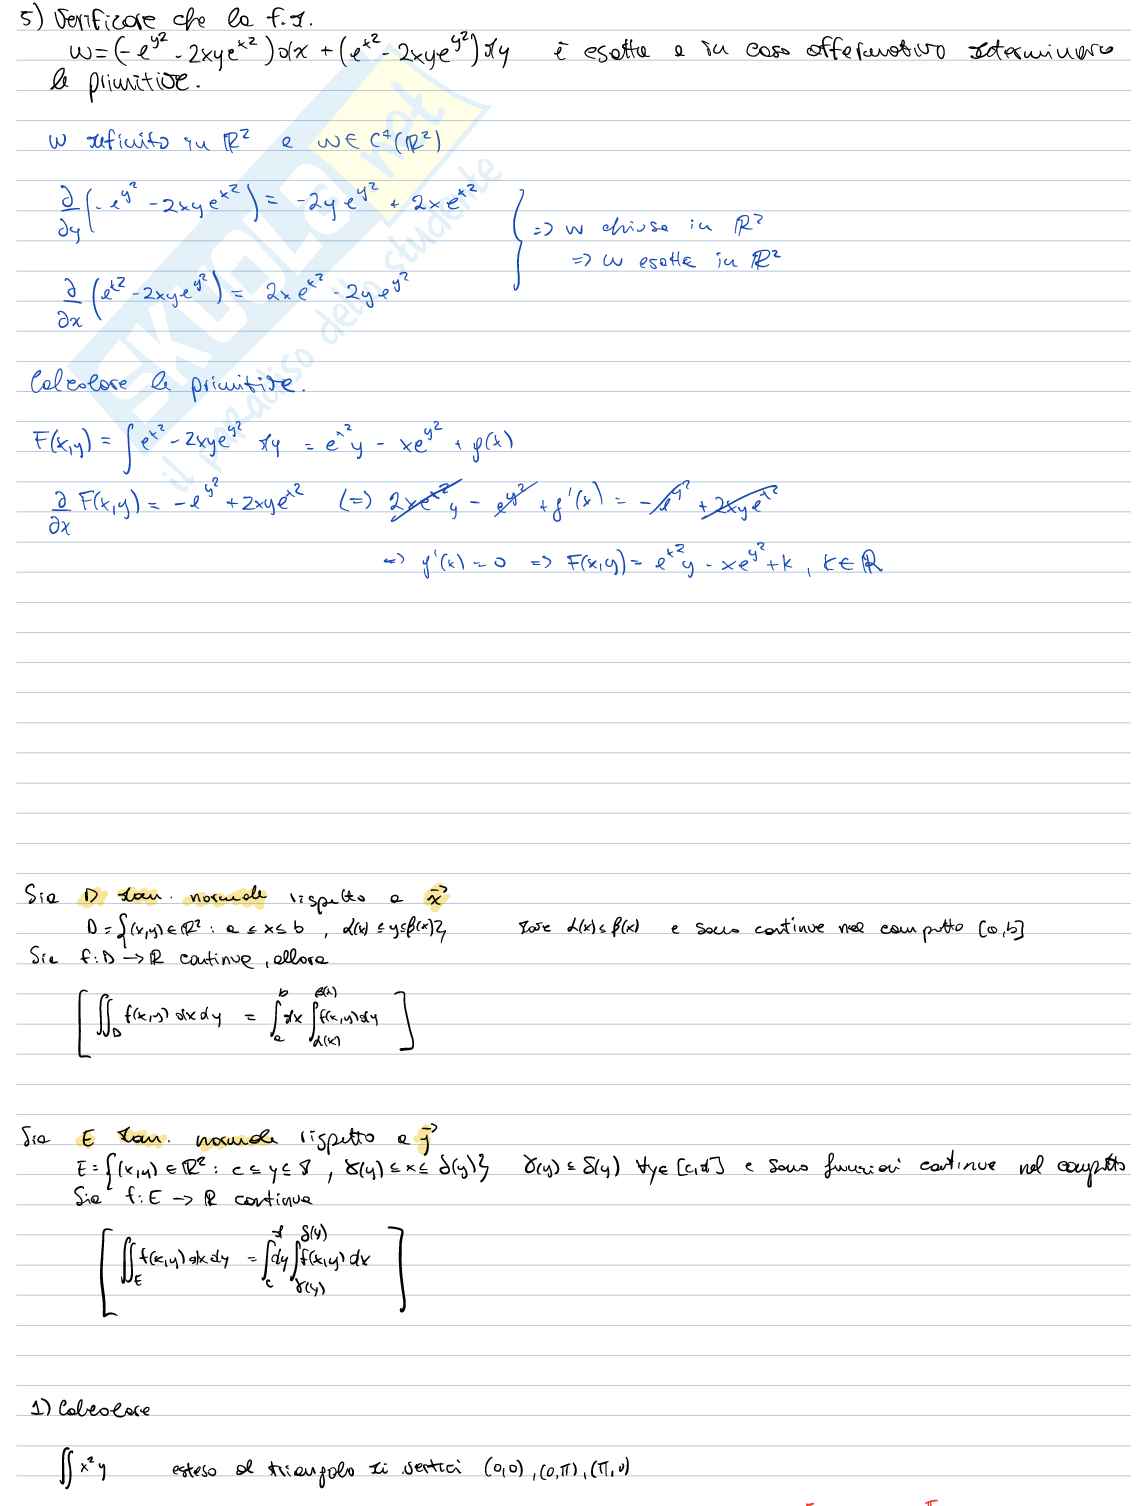 5) Verificare che la f.d.
w=(-e^{y²} - 2xye^{x²})dx + (e^{x²} - 2xye^{y²})dy è esatta e in caso affermativo determinare
le primitive.
w definito in ℝ² e w∈C¹(ℝ²)
∂/∂y (-e^{y²} - 2xye^{x²}) = -2ye^{y²} + 2xe^{x²}
=> w chiusa in ℝ²
=> w esatta in ℝ²
∂/∂x (e^{x²} - 2xye^{y²}) = 2xe^{x²} - 2ye^{y²}
Calcolare le primitive.
F(x,y) = ∫ e^{x²} - 2xye^{y²} dy = e^{x²}y - xe^{y²} + g(x)
∂/∂x F(x,y) = -e^{y²} + 2xye^{x²} (=> 2xe^{x²}y - e^{y²} + g'(x) = -e^{y²} + 2xye^{x²}
=> g'(x) = 0 => F(x,y) = e^{x²}y - xe^{y²} + k, k∈ℝ
Sia D dom. normale rispetto a x⃗
D = {(x,y)∈ℝ² : a ≤ x ≤ b , α(x) ≤ y ≤ β(x)}, dove α(x) ≤ β(x) e sono continue nel compatto [a,b]
Sia f: D → ℝ continue, allora
[∬_D f(x,y) dxdy = ∫_a^b dx ∫_{α(x)}^{β(x)} f(x,y)dy]
Sia E dom. normale rispetto a y⃗
E = {(x,y) ∈ ℝ² : c ≤ y ≤ d , γ(y) ≤ x ≤ δ(y)}, γ(y) ≤ δ(y) ∀y∈[c,d] e sono funzioni continue nel compatto
Sia f: E → ℝ continua
[∬_E f(x,y) dxdy = ∫_c^d dy ∫_{γ(y)}^{δ(y)} f(x,y) dx]
1) Calcolare
∬ x²y esteso al triangolo di vertici (0,0), (0,π), (π,0)
SKUOLA.net
il paradiso dello studente